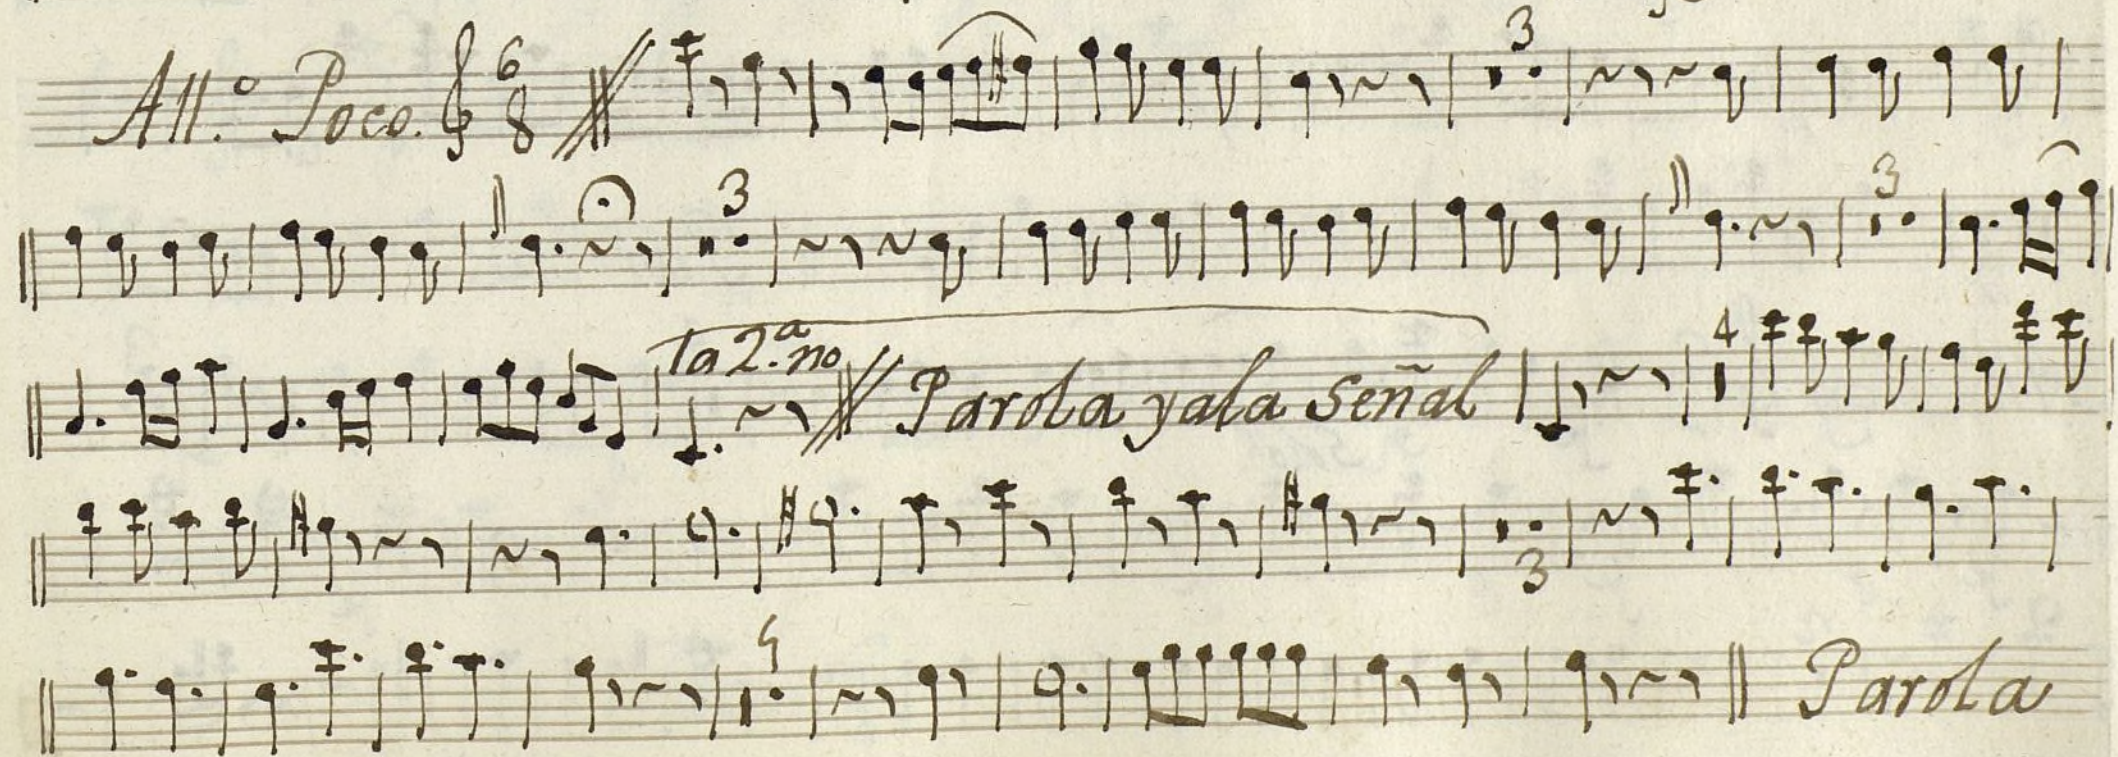 All.º Poco. 6 8 3
3 3
la 2.ª no Parola y a la Señal 4
3
4 Parola